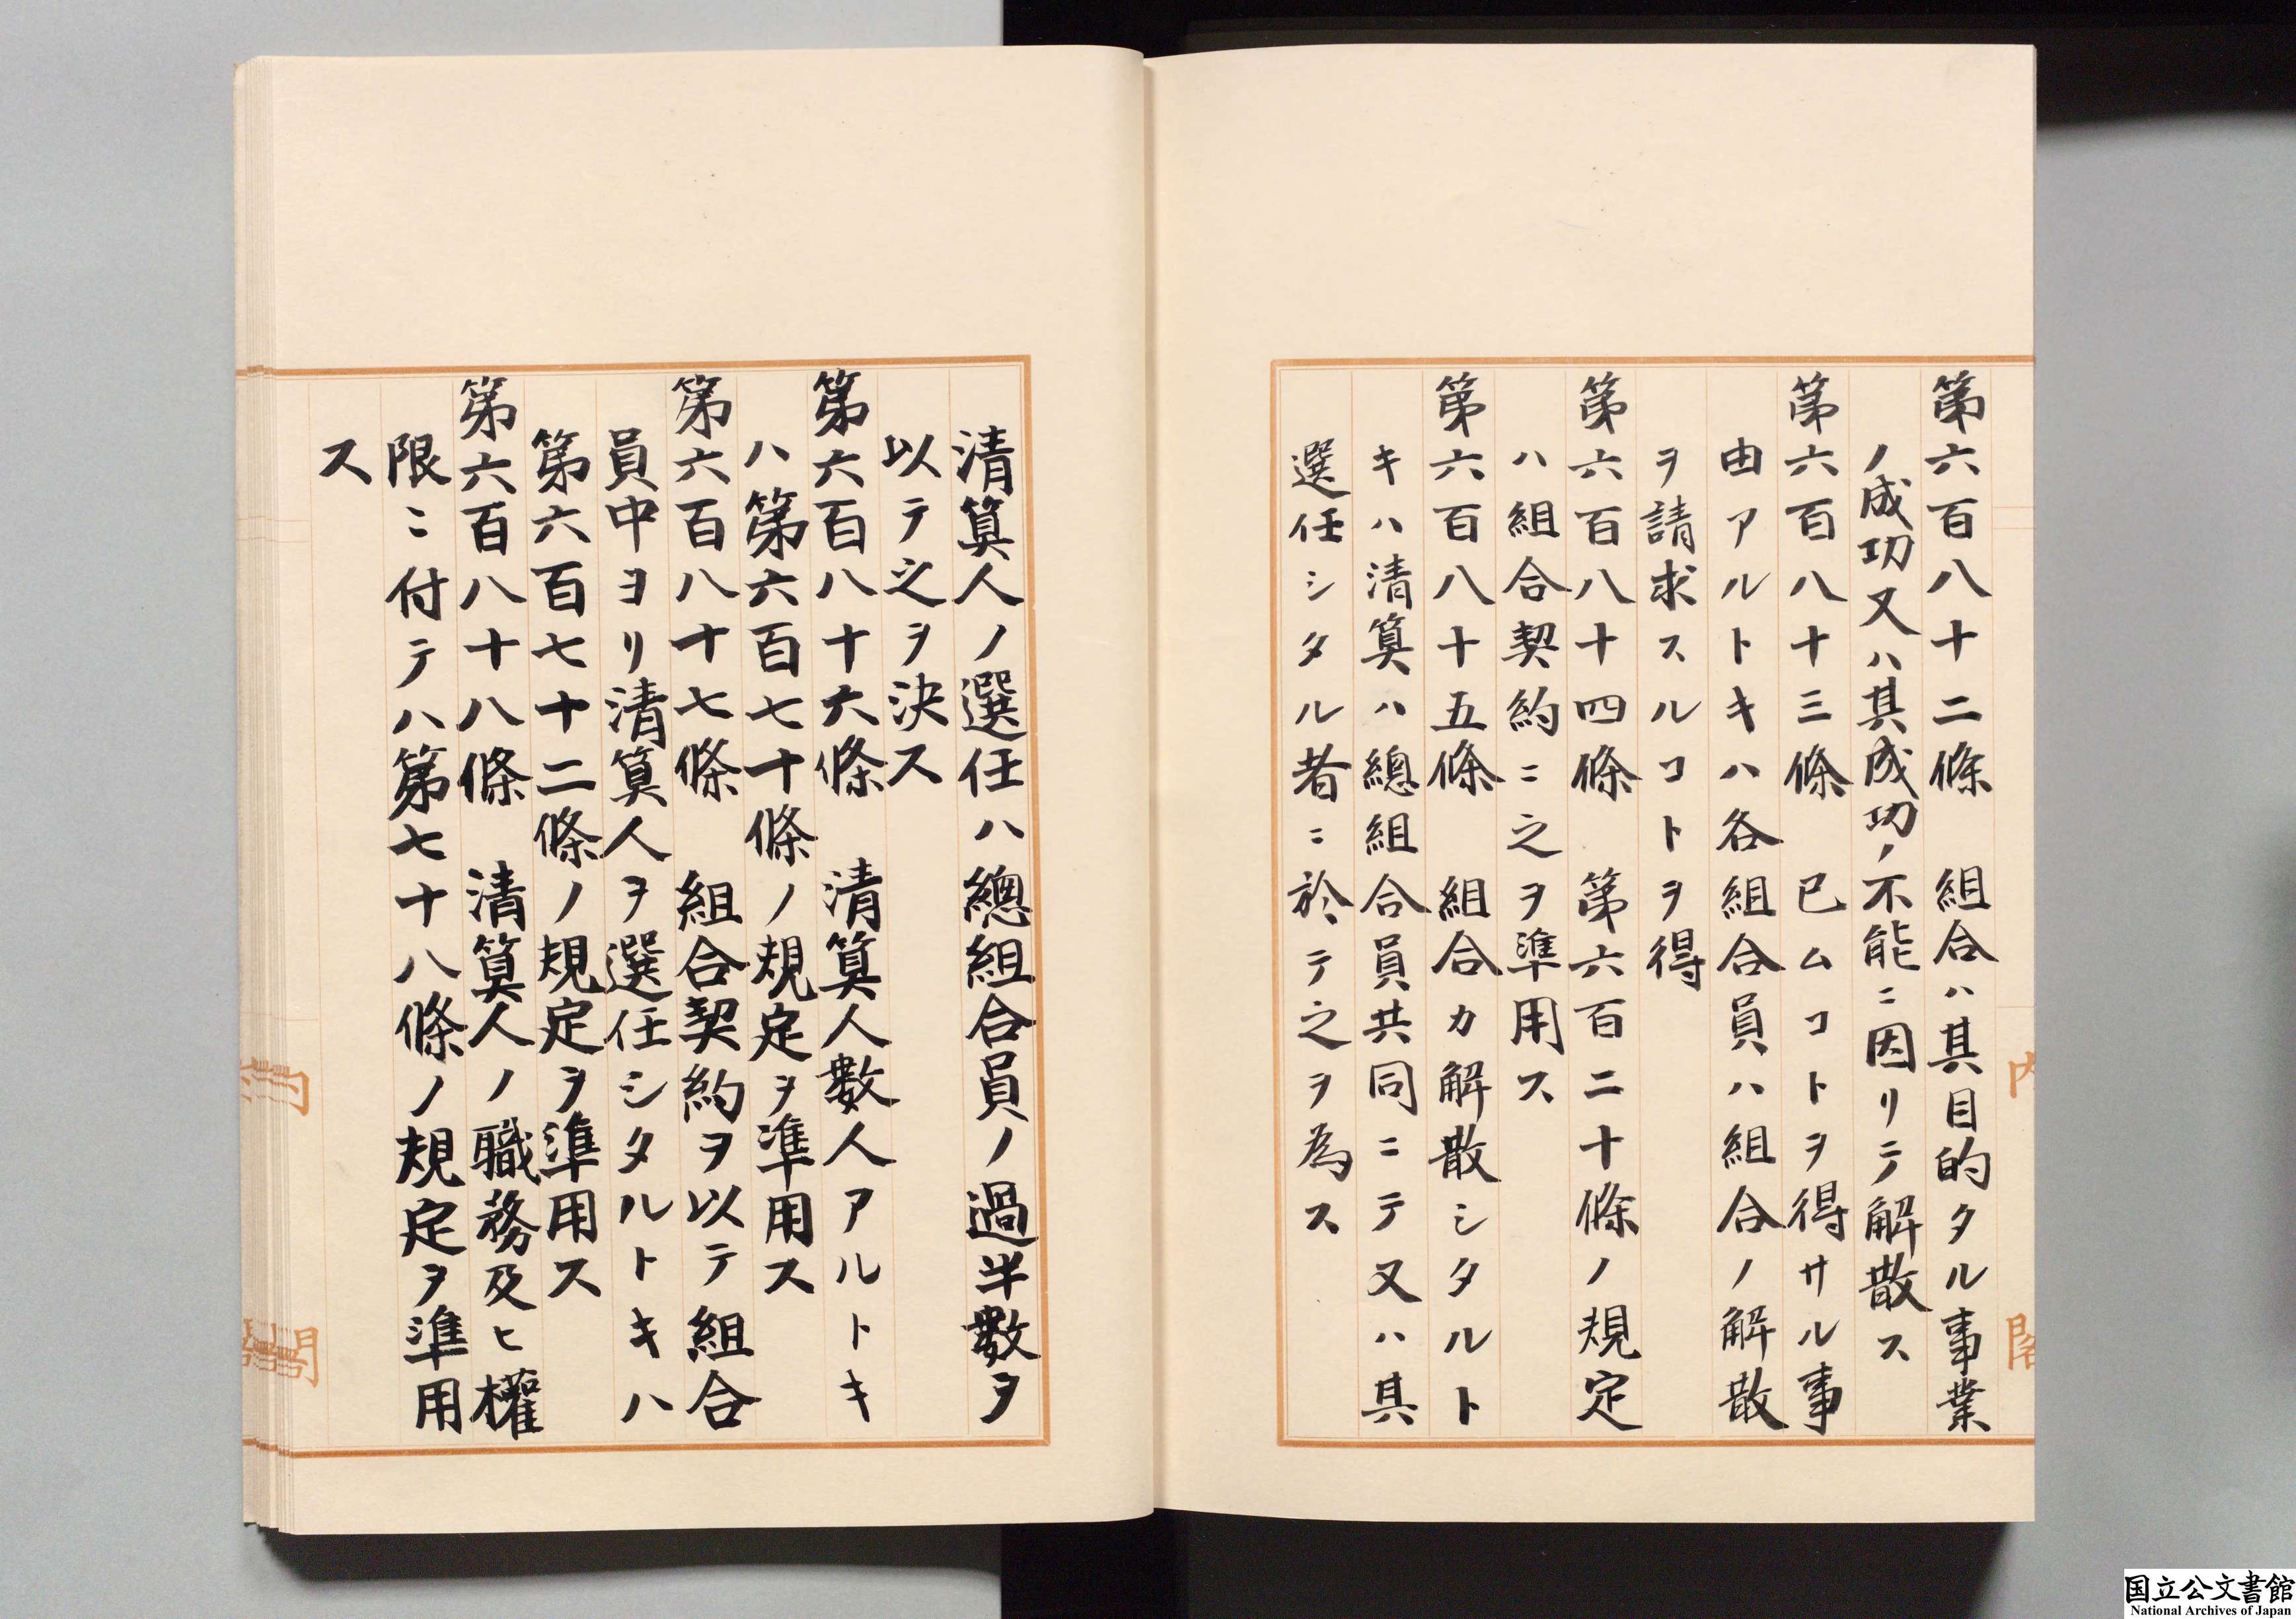 第六百八十二條　組合ハ其目的タル事業
ノ成功又ハ其成功ノ不能ニ因リテ解散ス
第六百八十三條　已ムコトヲ得サル事
由アルトキハ各組合員ハ組合ノ解散
ヲ請求スルコトヲ得
第六百八十四條　第六百二十條ノ規定
ハ組合契約ニ之ヲ準用ス
第六百八十五條　組合カ解散シタルト
キハ清算ハ總組合員共同ニテ又ハ其
選任シタル者ニ於テ之ヲ為ス
清算人ノ選任ハ總組合員ノ過半數ヲ
以テ之ヲ決ス
第六百八十六條　清算人數人アルトキ
ハ第六百七十條ノ規定ヲ準用ス
第六百八十七條　組合契約ヲ以テ組合
員中ヨリ清算人ヲ選任シタルトキハ
第六百七十二條ノ規定ヲ準用ス
第六百八十八條　清算人ノ職務及ヒ權
限ニ付テハ第七十八條ノ規定ヲ準用
ス
内閣
国立公文書館
National Archives of Japan